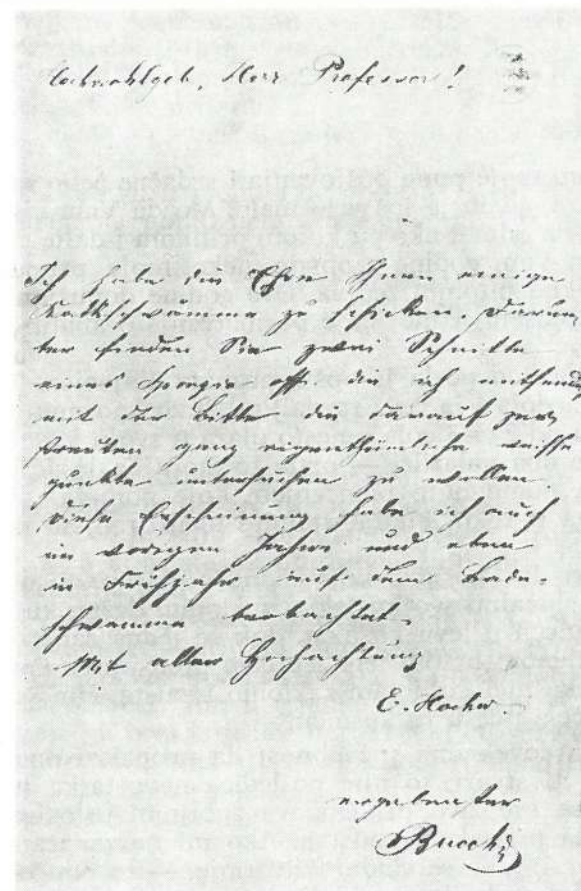 Hochwohlgeb. Herr Professor!
Ich habe die Ehre Ihnen einige
Kalkschwämme zu schicken. Darun-
ter finden Sie zwei Schnitte
eines Spongia off. die ich mitsende
mit der Bitte die darauf zer-
streuten ganz eigenthümliche weisse
punkte untersuchen zu wollen.
Diese Erscheinung habe ich auch
im vorigen Jahre und eben
in Frühjahr auf dem Bade-
schwamme beobachtet.
Mit aller Hochachtung
E. Hochw.
ergebenster
Buccich